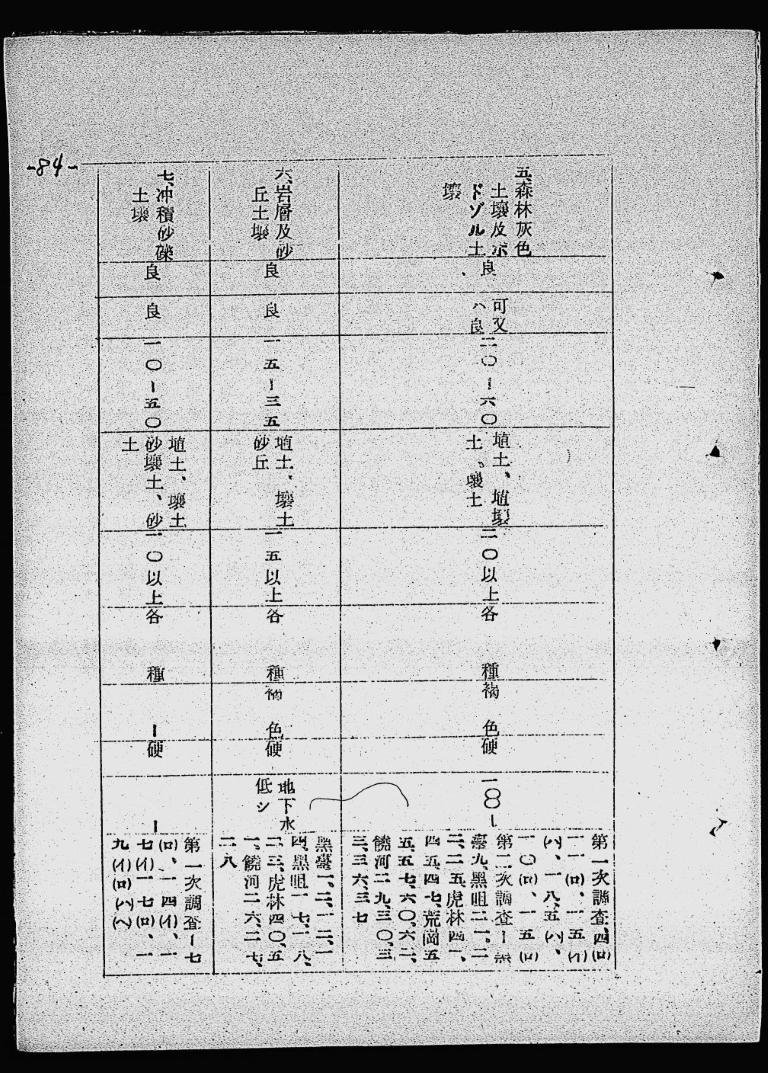 -84-
五、森林灰色
土壤及ポ
ドゾル土
壤
良
可又
ハ良
二〇ー六〇
埴土、埴壤
土、壤土
二〇以上
各種
褐色
硬
一〇〇ー
第一次調査、四(ロ)
一一(ロ)、一五(イ)
(ハ)、一八、五(ハ)、
一〇(ロ)、一五(ロ)
第二次調査ー黑
臺九、黑咀二一、二
二、二五虎林四一、
四五四七、荒崗五
五、五七、六〇、六二、
饒河二九、三〇、三
三、三六、三七
六、岩層及砂
丘土壤
良
良
一五ー三五
埴土、壤土
砂丘
一五以上
各種
褐色
硬
地下水
低シ
黑臺一、二、一二、一
四、黑咀一七、一八、
二三、虎林四〇、五
一、饒河二六、二七、
二八
七、冲積砂礫
土壤
良
良
一〇ー五〇
埴土、壤土
砂壤土、砂
土
一〇以上
各種
ー
硬
ー
第一次調査ー七
(ロ)、一四(イ)、一
七(イ)一七(ロ)、一
九(イ)(ロ)